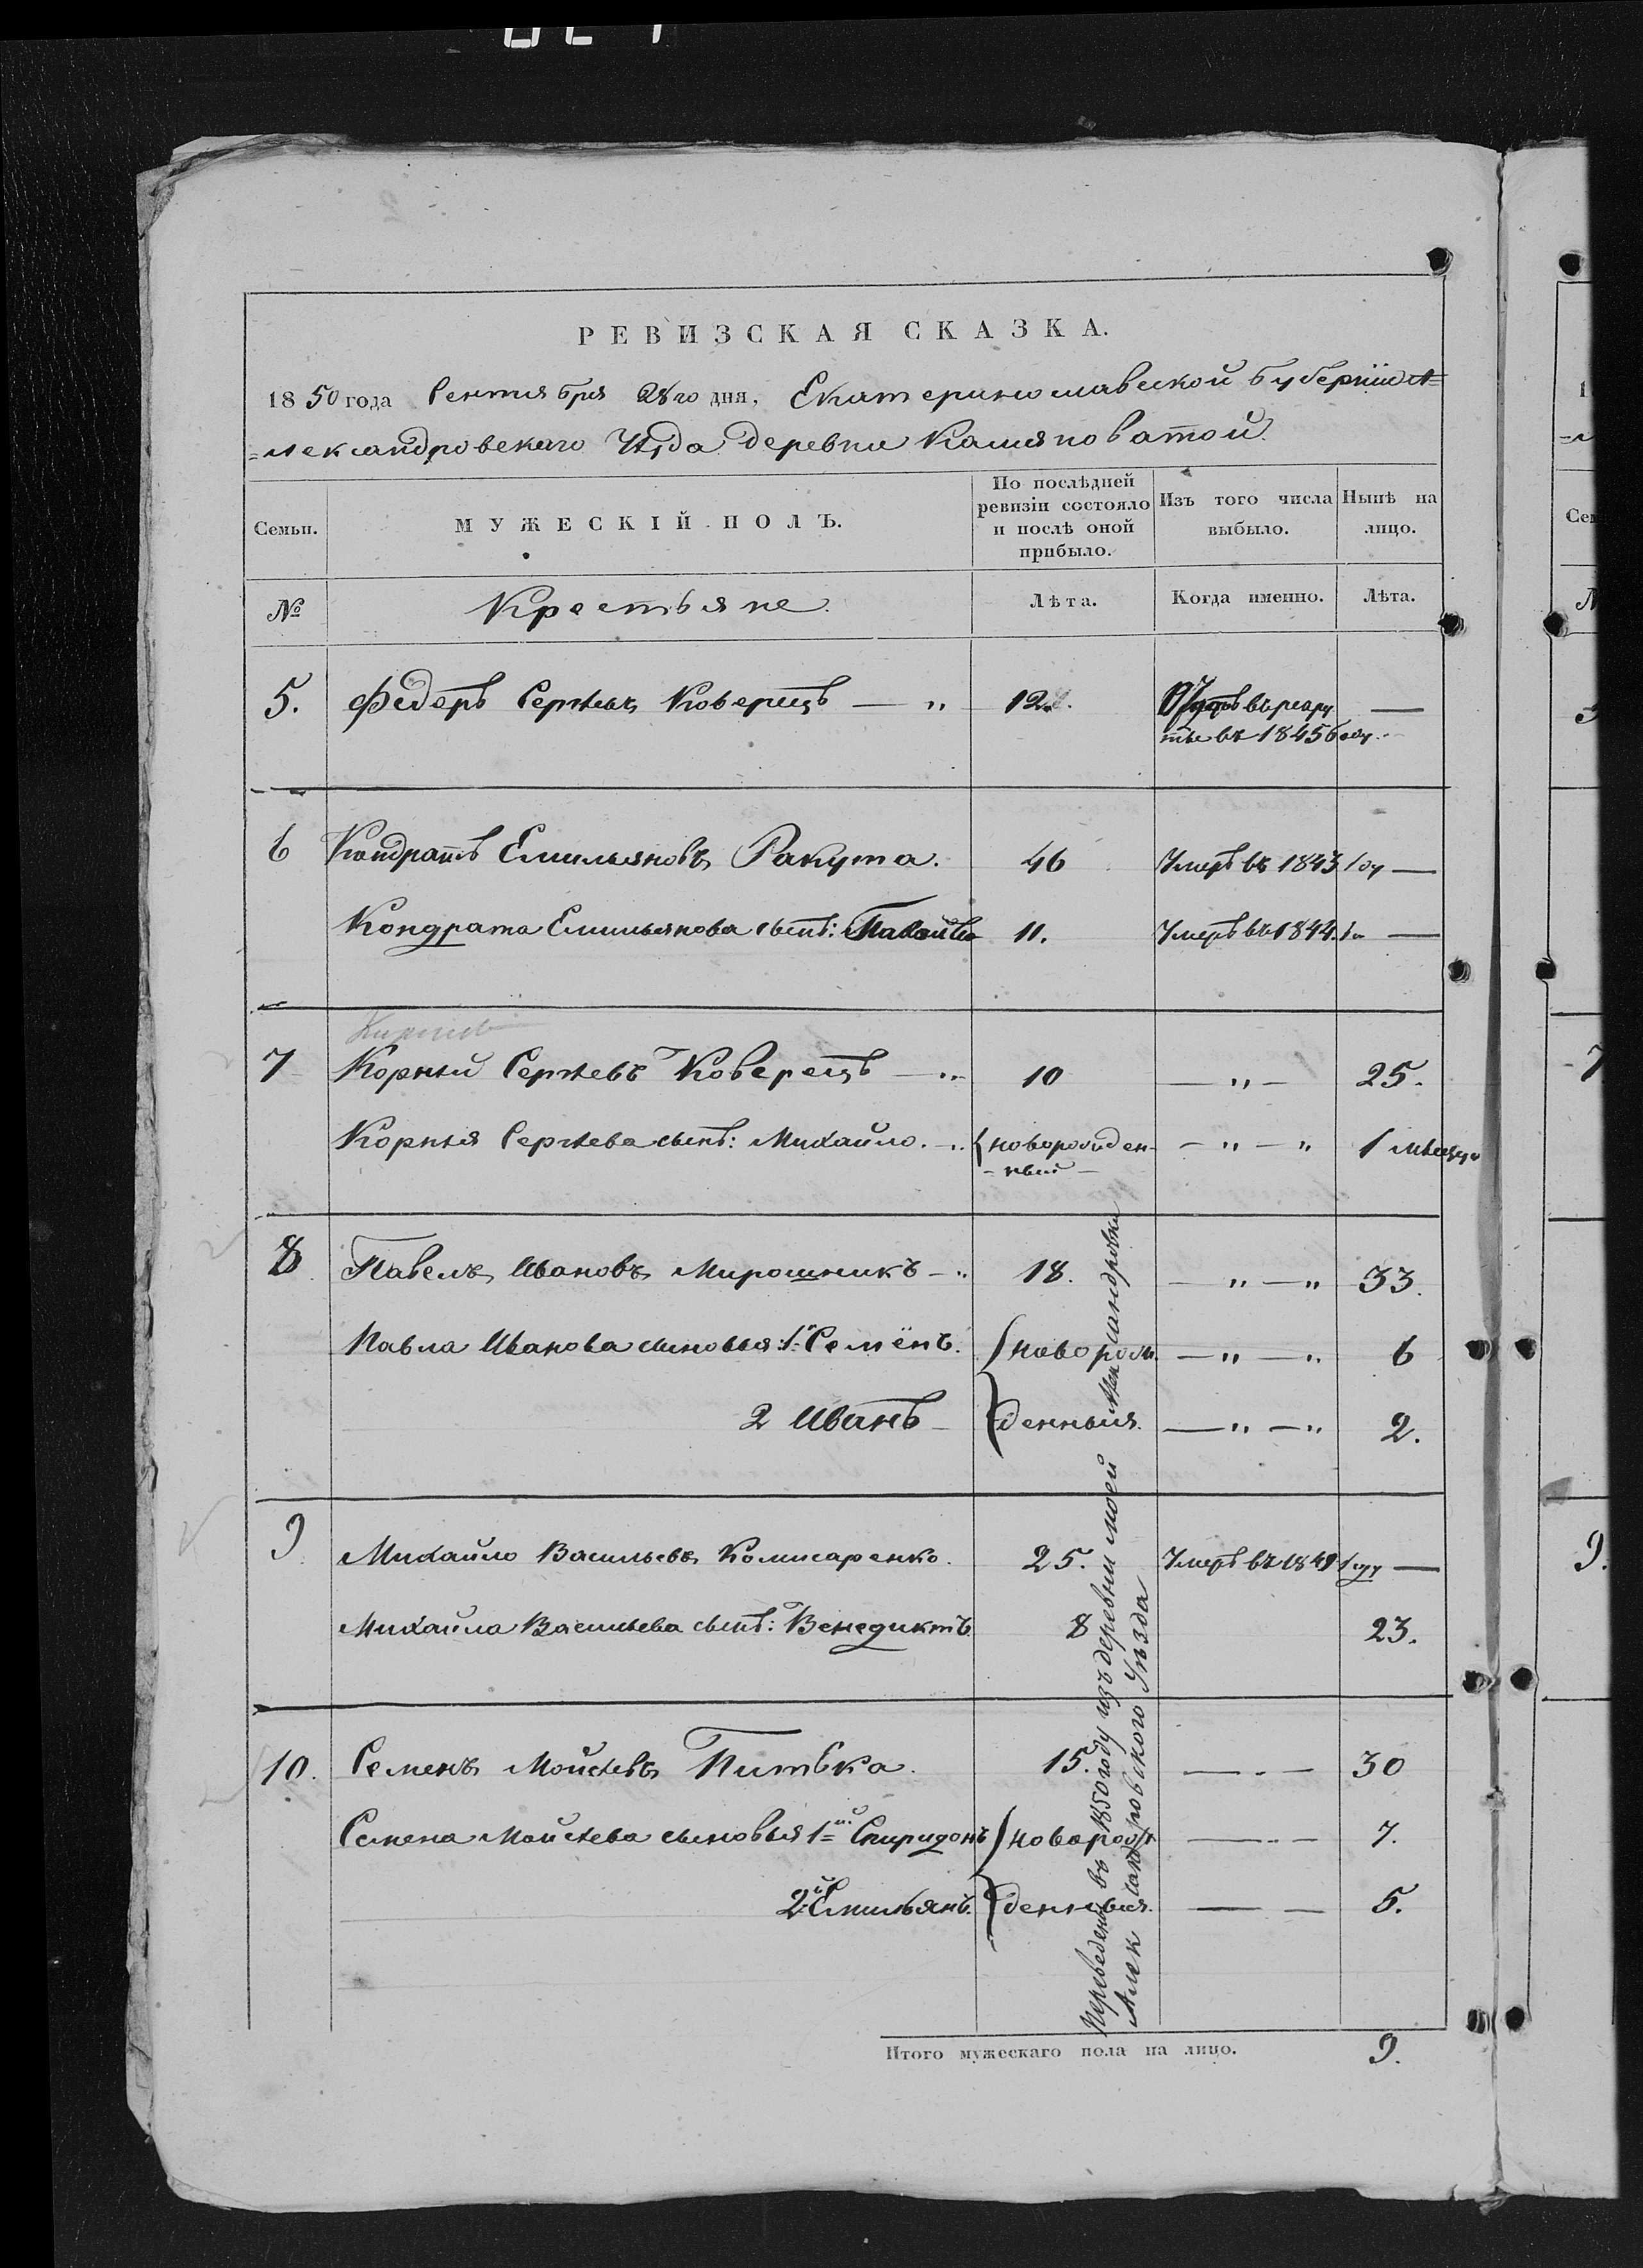 РЕВИЗСКАЯ СКАЗКА.
1850 года Сентября 28го дня, Екатеринославской Губерніи А=
=лександровскаго Уѣзда деревни Камяноватой.
Семьи.
МУЖЕСКІЙ ПОЛЪ.
По послѣдней ревизіи состояло и послѣ оной прибыло.
Изъ того числа выбыло.
Нынѣ на лицо.
№
Крестьяне.
Лѣта.
Когда именно.
Лѣта.
5. Федоръ Сергѣевъ Коверецъ — „ 12. въ рекру —
ты въ 1845 Году.
6 Кондратъ Емильяновъ Ракута. 46 Умеръ въ 1843 Году —
Кондрата Емильянова сынъ: 11. Умеръ въ 1844. Го —
7 Корнѣй Сергѣевъ Коверецъ — „ 10 — „ — 25.
Корнѣя Сергѣева сынъ: Михайло. — „ новорожден- — „ — „ 1 мѣсяца
- ный -
8 Павелъ Ивановъ Мирошникъ — „ 18. — „ — „ 33.
Павла Иванова сыновья: 1й Семёнъ. новорож — „ — „ 6
2 Иванъ — денныя. — „ — „ 2.
9 Михайло Васильевъ Комисаренко. 25. Умеръ въ 1849 Году —
Михайла Васильева сынъ: Венедиктъ 8 23.
10. Семенъ Мойсѣевъ Питька. 15. — „ — 30
Семена Мойсѣева сыновья 1й Спиридонъ новорож — „ — 7.
2й Емильянъ. денныя. — — 5.
Переведены въ 1850 году изъ деревни моей Александровки
Александровского Уѣзда
Итого мужескаго пола на лицо. 9.